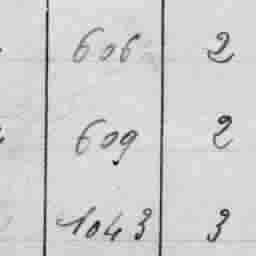 606 2
609 2
1043 3